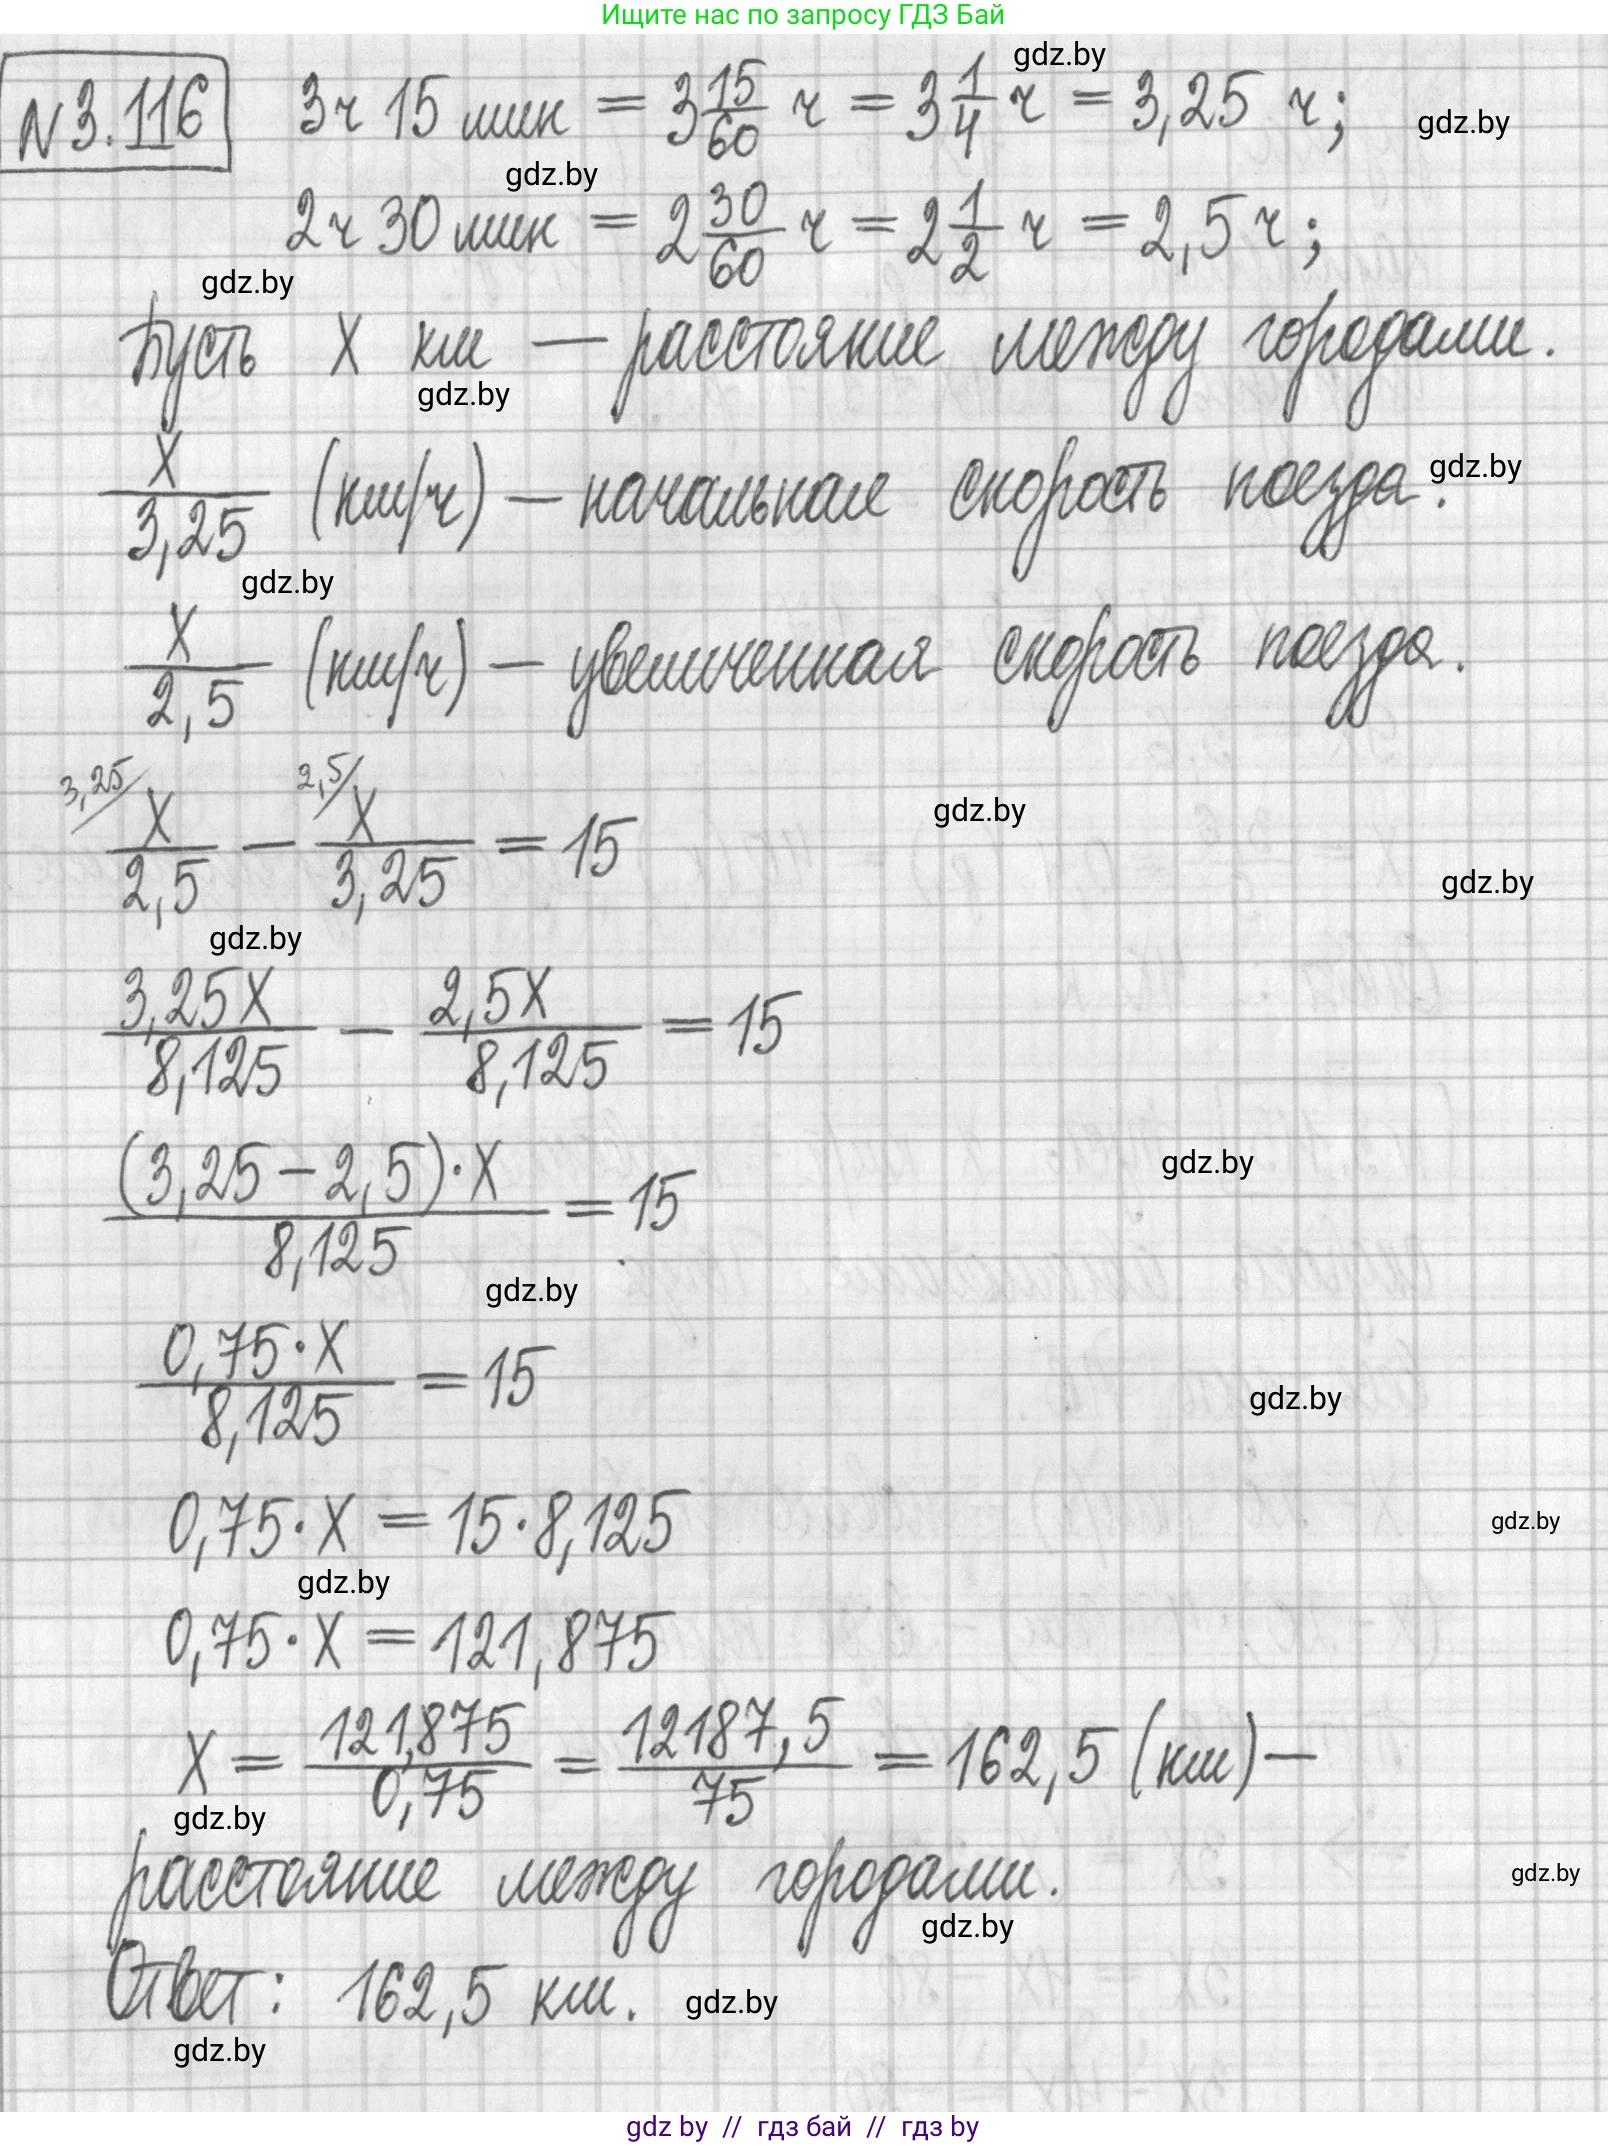 Ищите нас по запросу ГДЗ Бай
N 3.116 3ч 15 мин = 3 15/60 ч = 3 1/4 ч = 3,25 ч;
gdz.by
gdz.by
gdz.by
2ч 30 мин = 2 30/60 ч = 2 1/2 ч = 2,5 ч;
gdz.by
Пусть X км — расстояние между городами.
gdz.by
X/3,25 (км/ч) — начальная скорость поезда.
gdz.by
gdz.by
X/2,5 (км/ч) — увеличенная скорость поезда.
3,25/ X/2,5 − 2,5/ X/3,25 = 15
gdz.by
gdz.by
gdz.by
3,25X/8,125 − 2,5X/8,125 = 15
(3,25 − 2,5)·X/8,125 = 15
gdz.by
gdz.by
0,75·X/8,125 = 15
gdz.by
0,75·X = 15·8,125
gdz.by
gdz.by
0,75·X = 121,875
X = 121,875/0,75 = 12187,5/75 = 162,5 (км) —
gdz.by
расстояние между городами.
gdz.by
gdz.by
Ответ: 162,5 км.
gdz.by
gdz.by
gdz by // гдз бай // гдз by